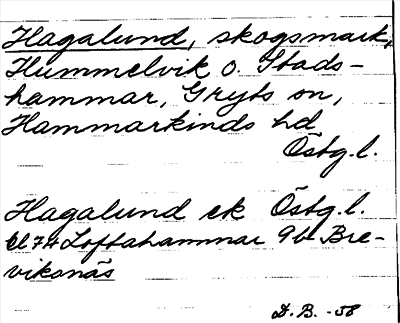 Hagalund, skogsmark,
Hummelvik o. Stads-
hammar, Gryts sn,
Hammarkinds hd
Östg.l.
Hagalund ek Östg.l.
bl 74 Loftahammar 9b Bre-
vikanäs
D. B. -58